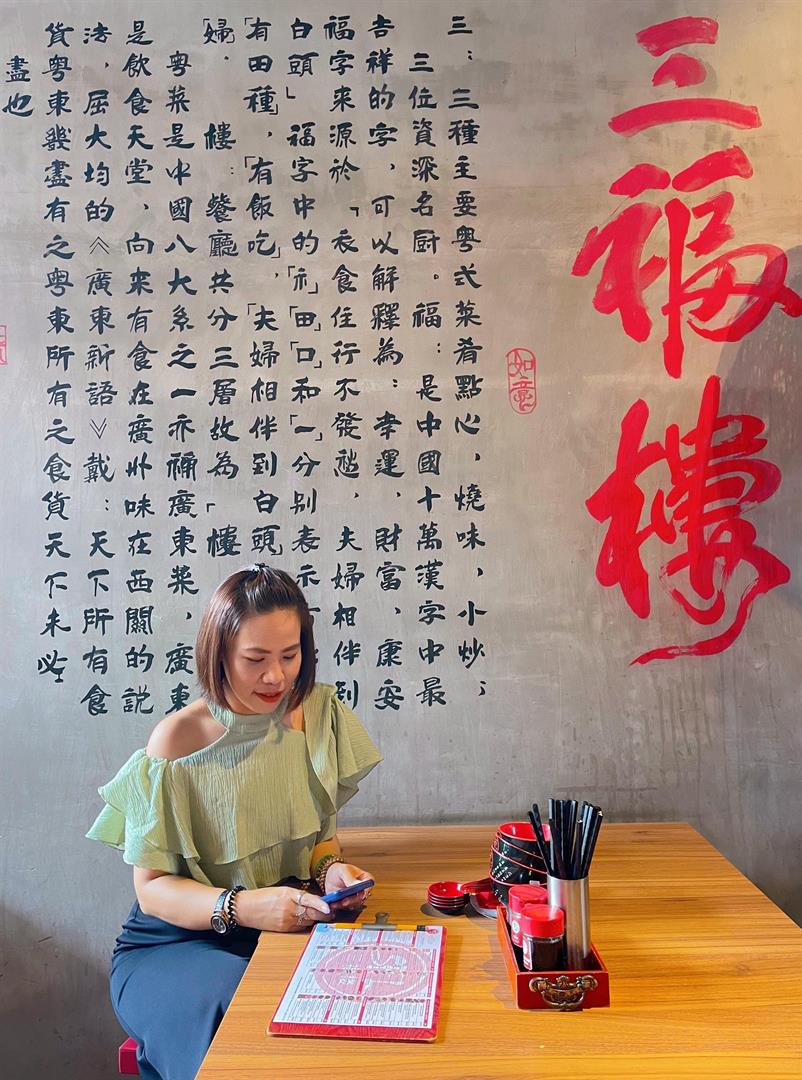 三福樓
如意
三：三種主要粵式菜肴點心，燒味，小炒；
三位資深名厨。福：是中國十萬漢字中最
吉祥的字，可以解釋為：幸運，財富，康安
福字來源於「衣食住行不發愁，夫婦相伴到
白頭」福字中的「礻」「田」「口」和「一」分别表示
「有田種」，「有飯吃」，「夫婦相伴到白頭」
「婦。樓：餐廳共分三層故為「樓
粵菜是中國八大系之一亦稱廣東菜，廣東
是飲食天堂，向來有食在廣州味在西關的説
法，屈大均的《廣東新語》戴：天下所有食
貨粵東幾盡有之粵東所有之食貨天下未必
盡也